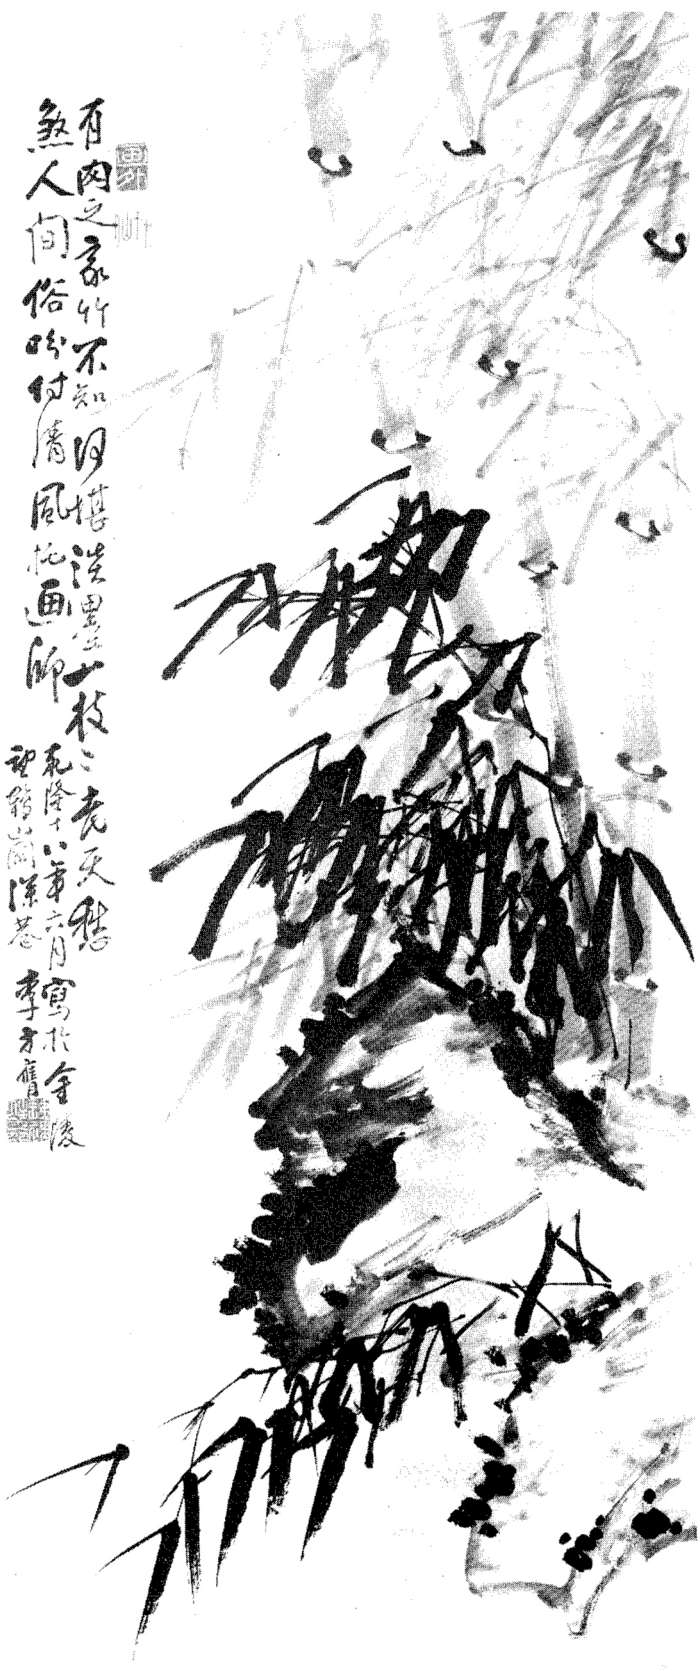 有肉之家竹不知何堪淡墨一枝〻老天愁
煞人間俗吩付清風托画師
乾隆十八年六月寫於金陵
鶴崗深巷 李方膺